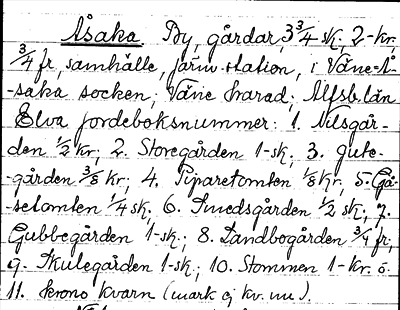 Åsaka By, gårdar, 3 3/4 sk, 2-kr,
3/4 fr, samhälle, järnv.station, i Väne-Å-
-saka socken; Väne härad; Älfsb. län
Elva jordeboksnummer: 1. Nilsgår-
den 1/2 kr; 2. Storegården 1-sk; 3. Jute-
-gården 3/8 kr; 4. Piparetomten 1/8 kr, 5. Gå-
-setomten 1/4 sk; 6. Smedsgården 1/2 sk; 7.
Gubbegården 1-sk; 8. Landbogården 3/4 fr,
9. Skulegården 1-sk; 10. Stommen 1-kr. o.
11. krono kvarn (mark ej kv. nu).